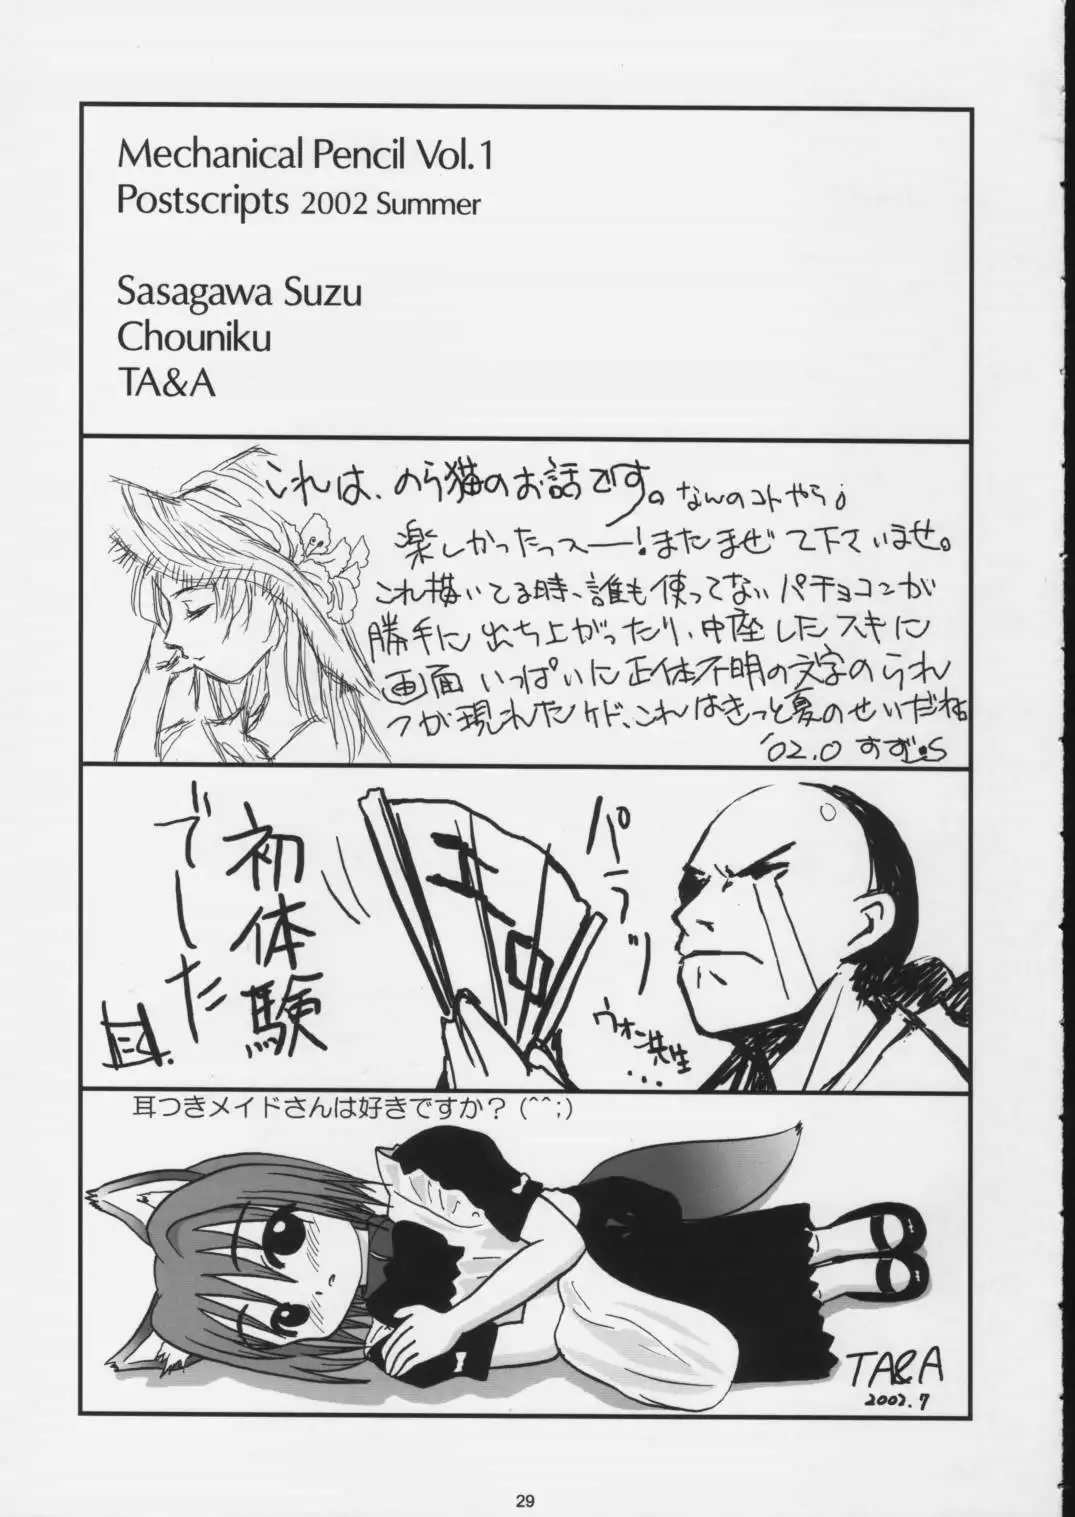 Mechanical Pencil Vol.1
Postscripts 2002 Summer
Sasagawa Suzu
Chouniku
TA&A
これは、のら猫のお話です。なんのコトやら。
楽しかったっスー!またまぜて下さいませ。
これ描いてる時、誰も使ってないパチョコンが
勝手に立ち上がったり、中座したスキに
画面いっぱいに正体不明の文字のられ
つが現れたケド、これはきっと夏のせいだね
'02.0 すず
初体験
でした
パラッ
ウォン先生
...
耳つきメイドさんは好きですか?(^^;)
TA&A
2002.7
29